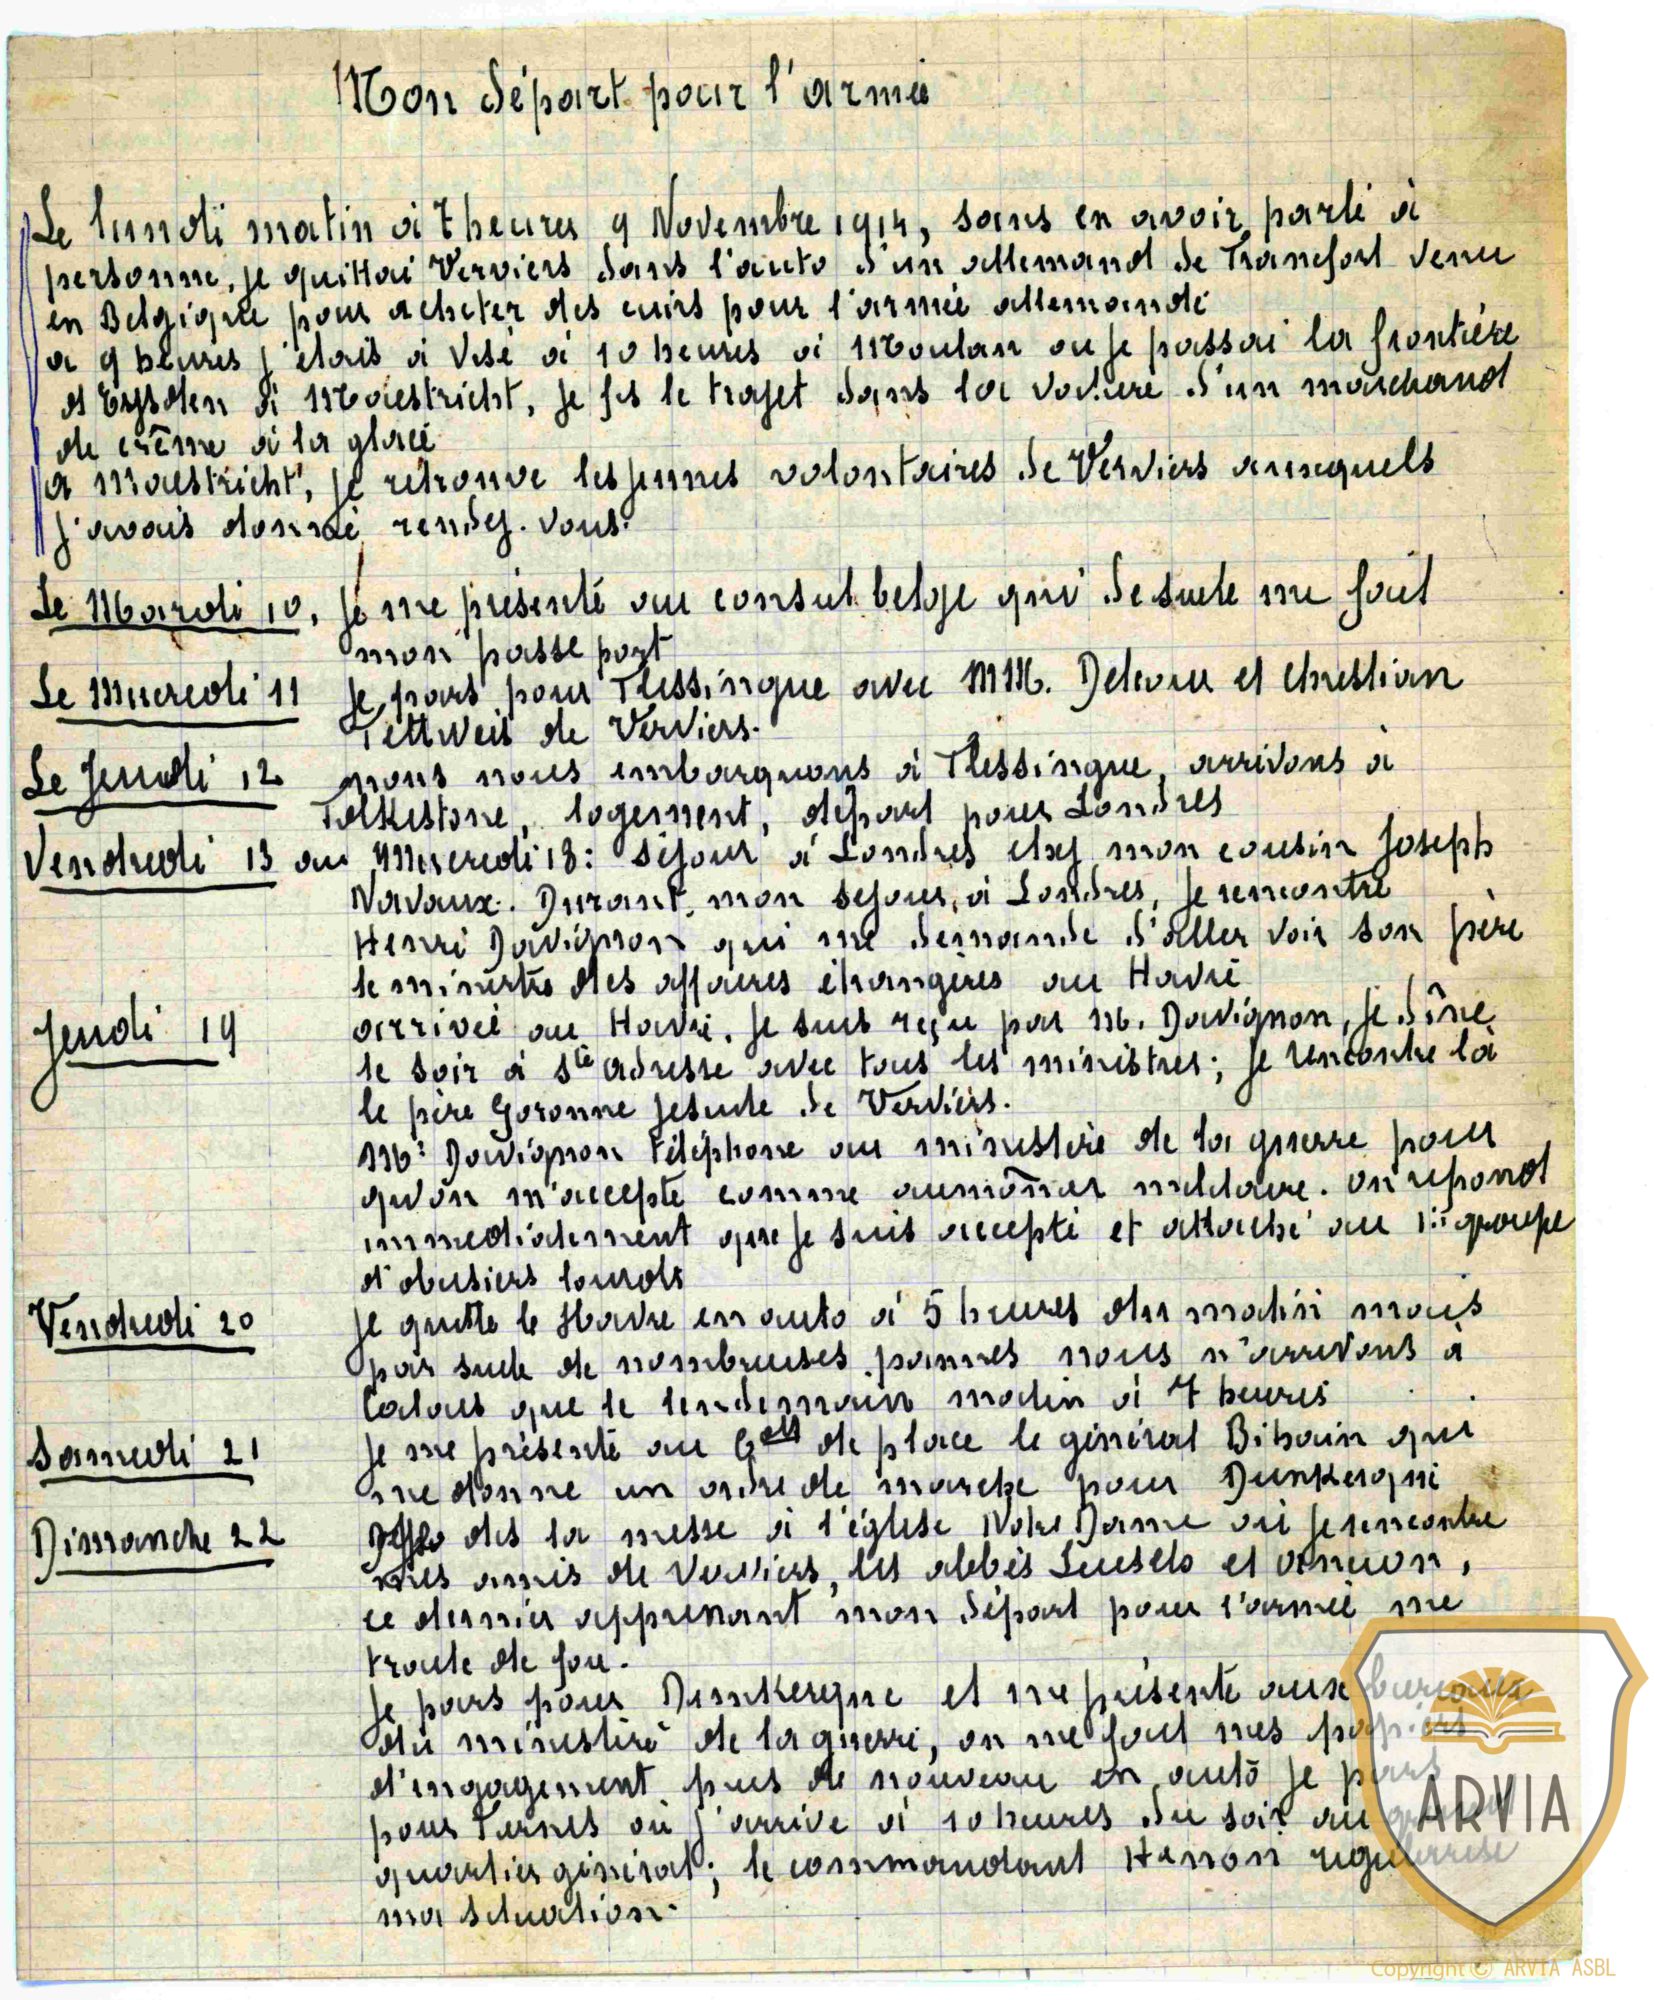 Mon départ pour l'armée
Le lundi matin à 7 heures 9 Novembre 1914, sans en avoir parlé à
personne, je quittai Verviers dans l'auto d'un allemand de Francfort venu
en Belgique pour acheter des cuirs pour l'armée allemande
a 9 heures j'étais à Visé à 10 heures à Moulan ou je passai la frontière
d'Eysden à Maestricht, je fis le trajet dans la voiture d'un marchand
de crême à la glace
a Maestricht, je retrouve les jeunes volontaires de Verviers auxquels
j'avais donné rendez-vous.
Le Mardi 10, je me présente au consul belge qui de suite me fait
mon passe port
Le Mercredi 11 je pars pour Flessingue avec MM. Delvaux et Chrestian
Tettweis de Verviers.
Le Jeudi 12 nous nous embarquons à Flessingue, arrivons à
Folkestone, logement, départ pour Londres
Vendredi 13 au Mercredi 18: séjour à Londres chez mon cousin Joseph
Navaux. Durant mon sejour à Londres, je rencontre
Henri Davignon qui me demande d'aller voir son père
le ministre des affaires étrangères au Havre
Jeudi 19 arrivée au Havre, je suis reçu par M. Davignon, je dîne
le soir à Ste adresse avec tous les ministres; je rencontre là
le père Goronne Jesuite de Verviers.
Mr Davignon téléphone au ministère de la guerre pour
qu'on m'accepte comme aumônier militaire. on repond
immediatement que je suis accepté et attaché au 1er groupe
d'obusiers lourds
Vendredi 20 je quitte le Havre en auto à 5 heures du matin mais
par suite de nombreuses pannes nous n'arrivons à
Calais que le lendemain matin à 7 heures
Samedi 21 je me présente au Gal de place le général Bihain qui
me donne un ordre de marche pour Dunkerque
Dimanche 22 des la messe à l'église Notre Dame où je rencontre
mes amis de Verviers, les abbés et
ce dernier apprenant mon départ pour l'armée me
traite de fou.
je pars pour Dunkerque et me présente aux bureaux
du ministère de la guerre, on me fait mes papiers
d'engagement puis de nouveau en auto je pars
pour Furnes où j'arrive à 10 heures du soir au grand
quartier général; le commandant Henon regularise
ma situation.
ARVIA
Copyright © ARVIA ASBL